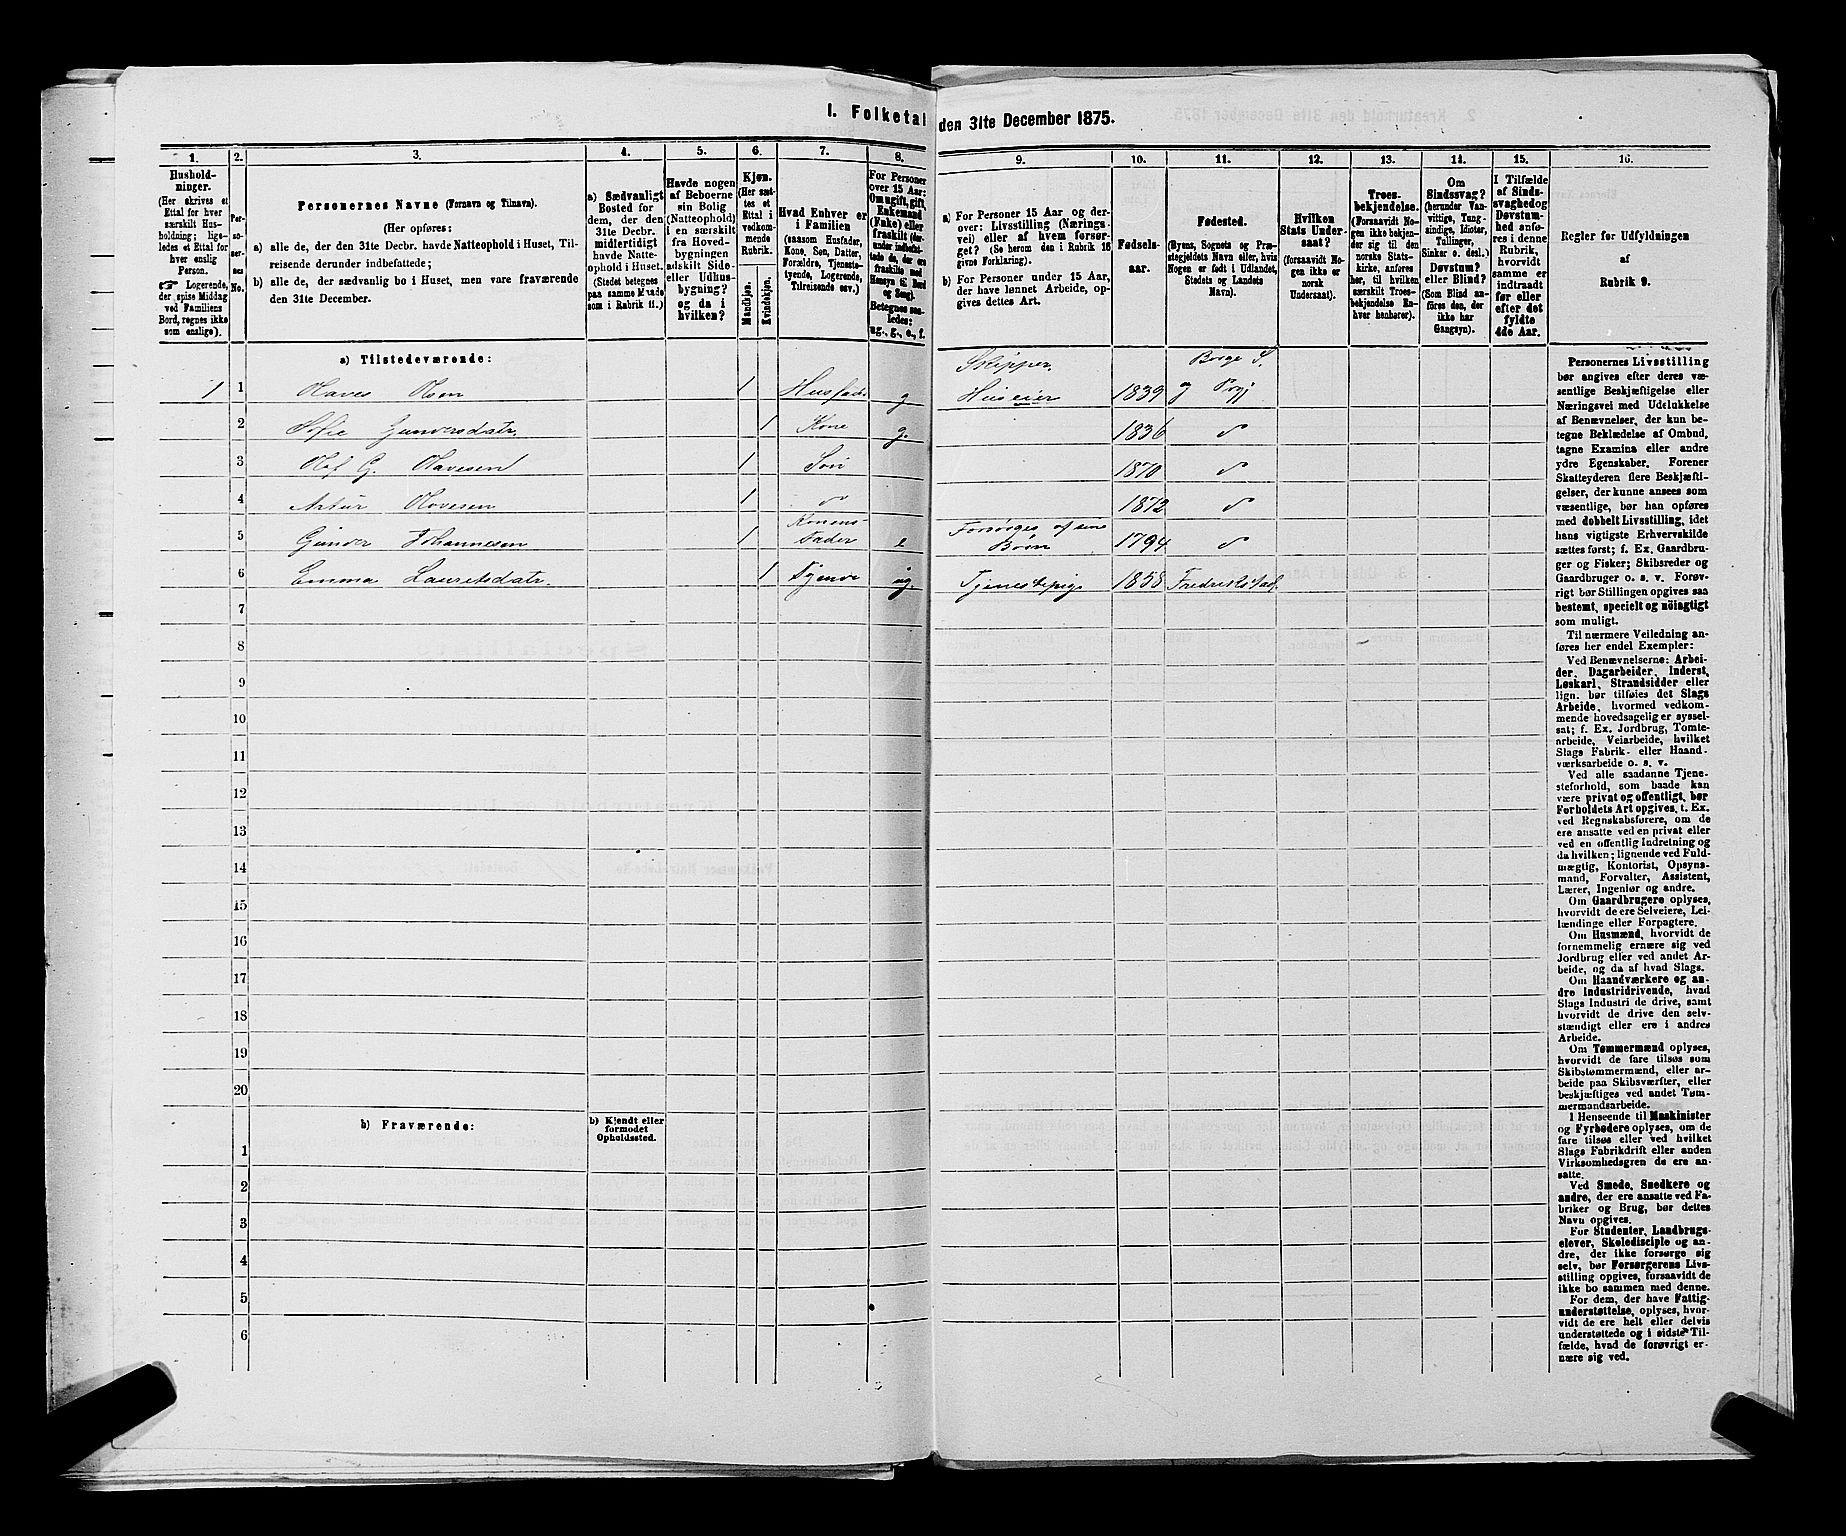 I. Folketal den 31te December 1875.
1. 2. 3. 4. 5. 6. 7. 8. 9. 10. 11. 12. 13. 14. 15. 16.
Hushold-
ninger.
(Her skrives et
Ettal for hver
særskilt Hus-
holdning; lige-
ledes et Ettal for
hver enslig
Person.
☞ Logerende,
der spise Middag
ved Familiens
Bord, regnes ikke
som enslige).
Per-
so-
ner-
nes
No.
Personernes Navne (Fornavn og Tilnavn).
(Her opføres:
a) alle de, der den 31te Decbr. havde Natteophold i Huset, Til-
reisende derunder indbefattede;
b) alle de, der sædvanlig bo i Huset, men vare fraværende
den 31te December.
a) Sædvanligt
Bosted for
dem, der den
31te Decbr.
midlertidigt
havde Natte-
ophold i Huset.
(Stedet betegnes
paa samme Maade
som i Rubrik 11.)
Havde nogen
af Beboerne
sin Bolig
(Natteophold)
i en særskilt
fra Hoved-
bygningen
adskilt Side-
eller Udhus-
bygning?
og da i
hvilken?
Kjøn.
(Her sæt-
tes et
Ettal i
vedkom-
mende
Rubrik.
Mandkjøn.
Kvindekjøn.
Hvad Enhver er
i Familien
(saasom Husfader,
Kone, Søn, Datter,
Forældre, Tjeneste-
tyende, Logerende,
Tilreisende osv.)
For Personer
over 15 Aar:
Om ugift, gift,
Enkemand
(Enke) eller
fraskilt
Betegnes saa-
ledes:
ug., g., e., f.
a) For Personer 15 Aar og der-
over: Livsstilling (Nærings-
vei) eller af hvem forsør-
get? (Se herom den i Rubrik 16
givne Forklaring).
b) For Personer under 15 Aar,
der have lønnet Arbeide, op-
gives dettes Art.
Fødsels-
aar.
Fødested.
(Byens, Sognets og Præ-
stegjeldets Navn eller, hvis
Nogen er født i Udlandet,
Stedets og Landets
Navn).
Hvilken
Stats Under-
saat?
(forsaavidt No-
gen ikke er
norsk
Undersaat).
Troes-
bekjendelse.
(Forsaavidt No-
gen ikke bekjen-
der sig til den
norske Stats-
kirke, anføres
her, til hvilken
særskilt Troes-
bekjendelse En-
hver henhører).
Om
Sindssvag?
(herunder Van-
vittige, Tung-
sindige, Idioter,
Tullinger,
Sinker o. desl.)
Døvstum?
eller Blind?
(Som Blind an-
føres den, der
ikke har
Gangsyn).
I Tilfælde
af Sinds-
svaghed og
Døvstum-
hed anfø-
res i denne
Rubrik,
hvorvidt
samme er
indtraadt
før eller
efter det
fyldte
4de Aar.
Regler før Udfyldningen
af
Rubrik 9.
a) Tilstedeværende:
Skipper, Borge S.
1 1 Olaves Olsen 1 Husfader g Huseier 1839 og Prgj
2 Sofie Gunersdatr. 1 Kone g. 1836 do
3 Olof G. Olavesen 1 Søn 1870 do
4 Artur Olovesen 1 do 1872 do
Konens Forsørges af sine
5 Gunder Johannesen 1 Fader e Børn 1794 do
6 Emma Lauretsdatr. 1 Tjener ug. Tjenestepige 1858 Fredrikstad
7
8
9
10
11
12
13
14
15
16
17
18
19
20
b) Fraværende:
b) Kjendt eller
formodet
Opholdssted.
1
2
3
4
5
6
Personernes Livsstilling
bør angives efter deres væ-
sentlige Beskjæftigelse eller
Næringsvei med Udelukkelse
af Benævnelser, der kun be-
tegne Beklædelse af Ombud,
tagne Examina eller andre
ydre Egenskaber. Forener
Skatteyderen flere Beskjæfti-
gelser, der kunne ansees som
væsentlige, bør han opføres
med dobbelt Livsstilling, idet
hans vigtigste Erhvervskilde
sættes først; f. Ex. Gaardbru-
ger og Fisker; Skibsreder og
Gaardbruger o. s. v. Forøv-
rigt bør Stillingen opgives saa
bestemt, specielt og nöiagtigt
som muligt.
Til nærmere Veiledning an-
føres her endel Exempler:
Ved Benævnelserne: Arbei-
der, Dagarbeider, Inderst,
Løskarl, Strandsidder eller
lign. bør tilføies det Slags
Arbeide, hvormed vedkom-
mende hovedsagelig er syssel-
sat; f. Ex. Jordbrug, Tomte-
arbeide, Veiarbeide, hvilket
Slags Fabrik- eller Haand-
værksarbeide o. s. v.
Ved alle saadanne Tjene-
steforhold, som baade kan
være privat og offentligt, bør
Forholdets Art opgives, t. Ex.
ved Regnskabsførere, om de
ere ansatte ved en privat eller
ved en offentlig Indretning og
da hvilken; lignende ved Fuld-
mægtig, Kontorist, Opsyns-
mand, Forvalter, Assistent,
Lærer, Ingeniør og andre.
Om Gaardbrugere oplyses,
hvorvidt de ere Selveiere, Lei-
lændinge eller Forpagtere.
Om Husmænd, hvorvidt de
fornemmelig ernære sig ved
Jordbrug eller ved andet Ar-
beide, og da af hvad Slags.
Om Haandværkere og an-
dre Industridrivende, hvad
Slags Industri de drive, samt
hvorvidt de drive den selv-
stændigt eller ere i andres
Arbeide.
Om Tømmermænd oplyses,
hvorvidt de fare tilsøs som
Skibstømmermænd, eller ar-
beide paa Skibsværfter, eller
beskjæftiges ved andet Tøm-
mermandsarbeide.
I Henseende til Maskinister
og Fyrbødere oplyses, om de
fare tilsøs eller ved hvilket
Slags Fabrikdrift eller anden
Virksomhedsgren de ere an-
satte.
Ved Smede, Snedkere og
andre, der ere ansatte ved Fa-
briker og Brug, bør dettes
Navn opgives.
For Studenter, Landbrugs-
elever, Skoledisciple og an-
dre, der ikke forsørge sig
selv, bør Forsørgerens Livs-
stilling opgives, forsaavidt de
ikke bo sammen med denne.
For dem, der have Fattig-
understøttelse, oplyses, hvor-
vidt de ere helt eller delvis
understøttede og i sidste Til-
fælde, hvad de forøvrigt er-
nære sig ved.